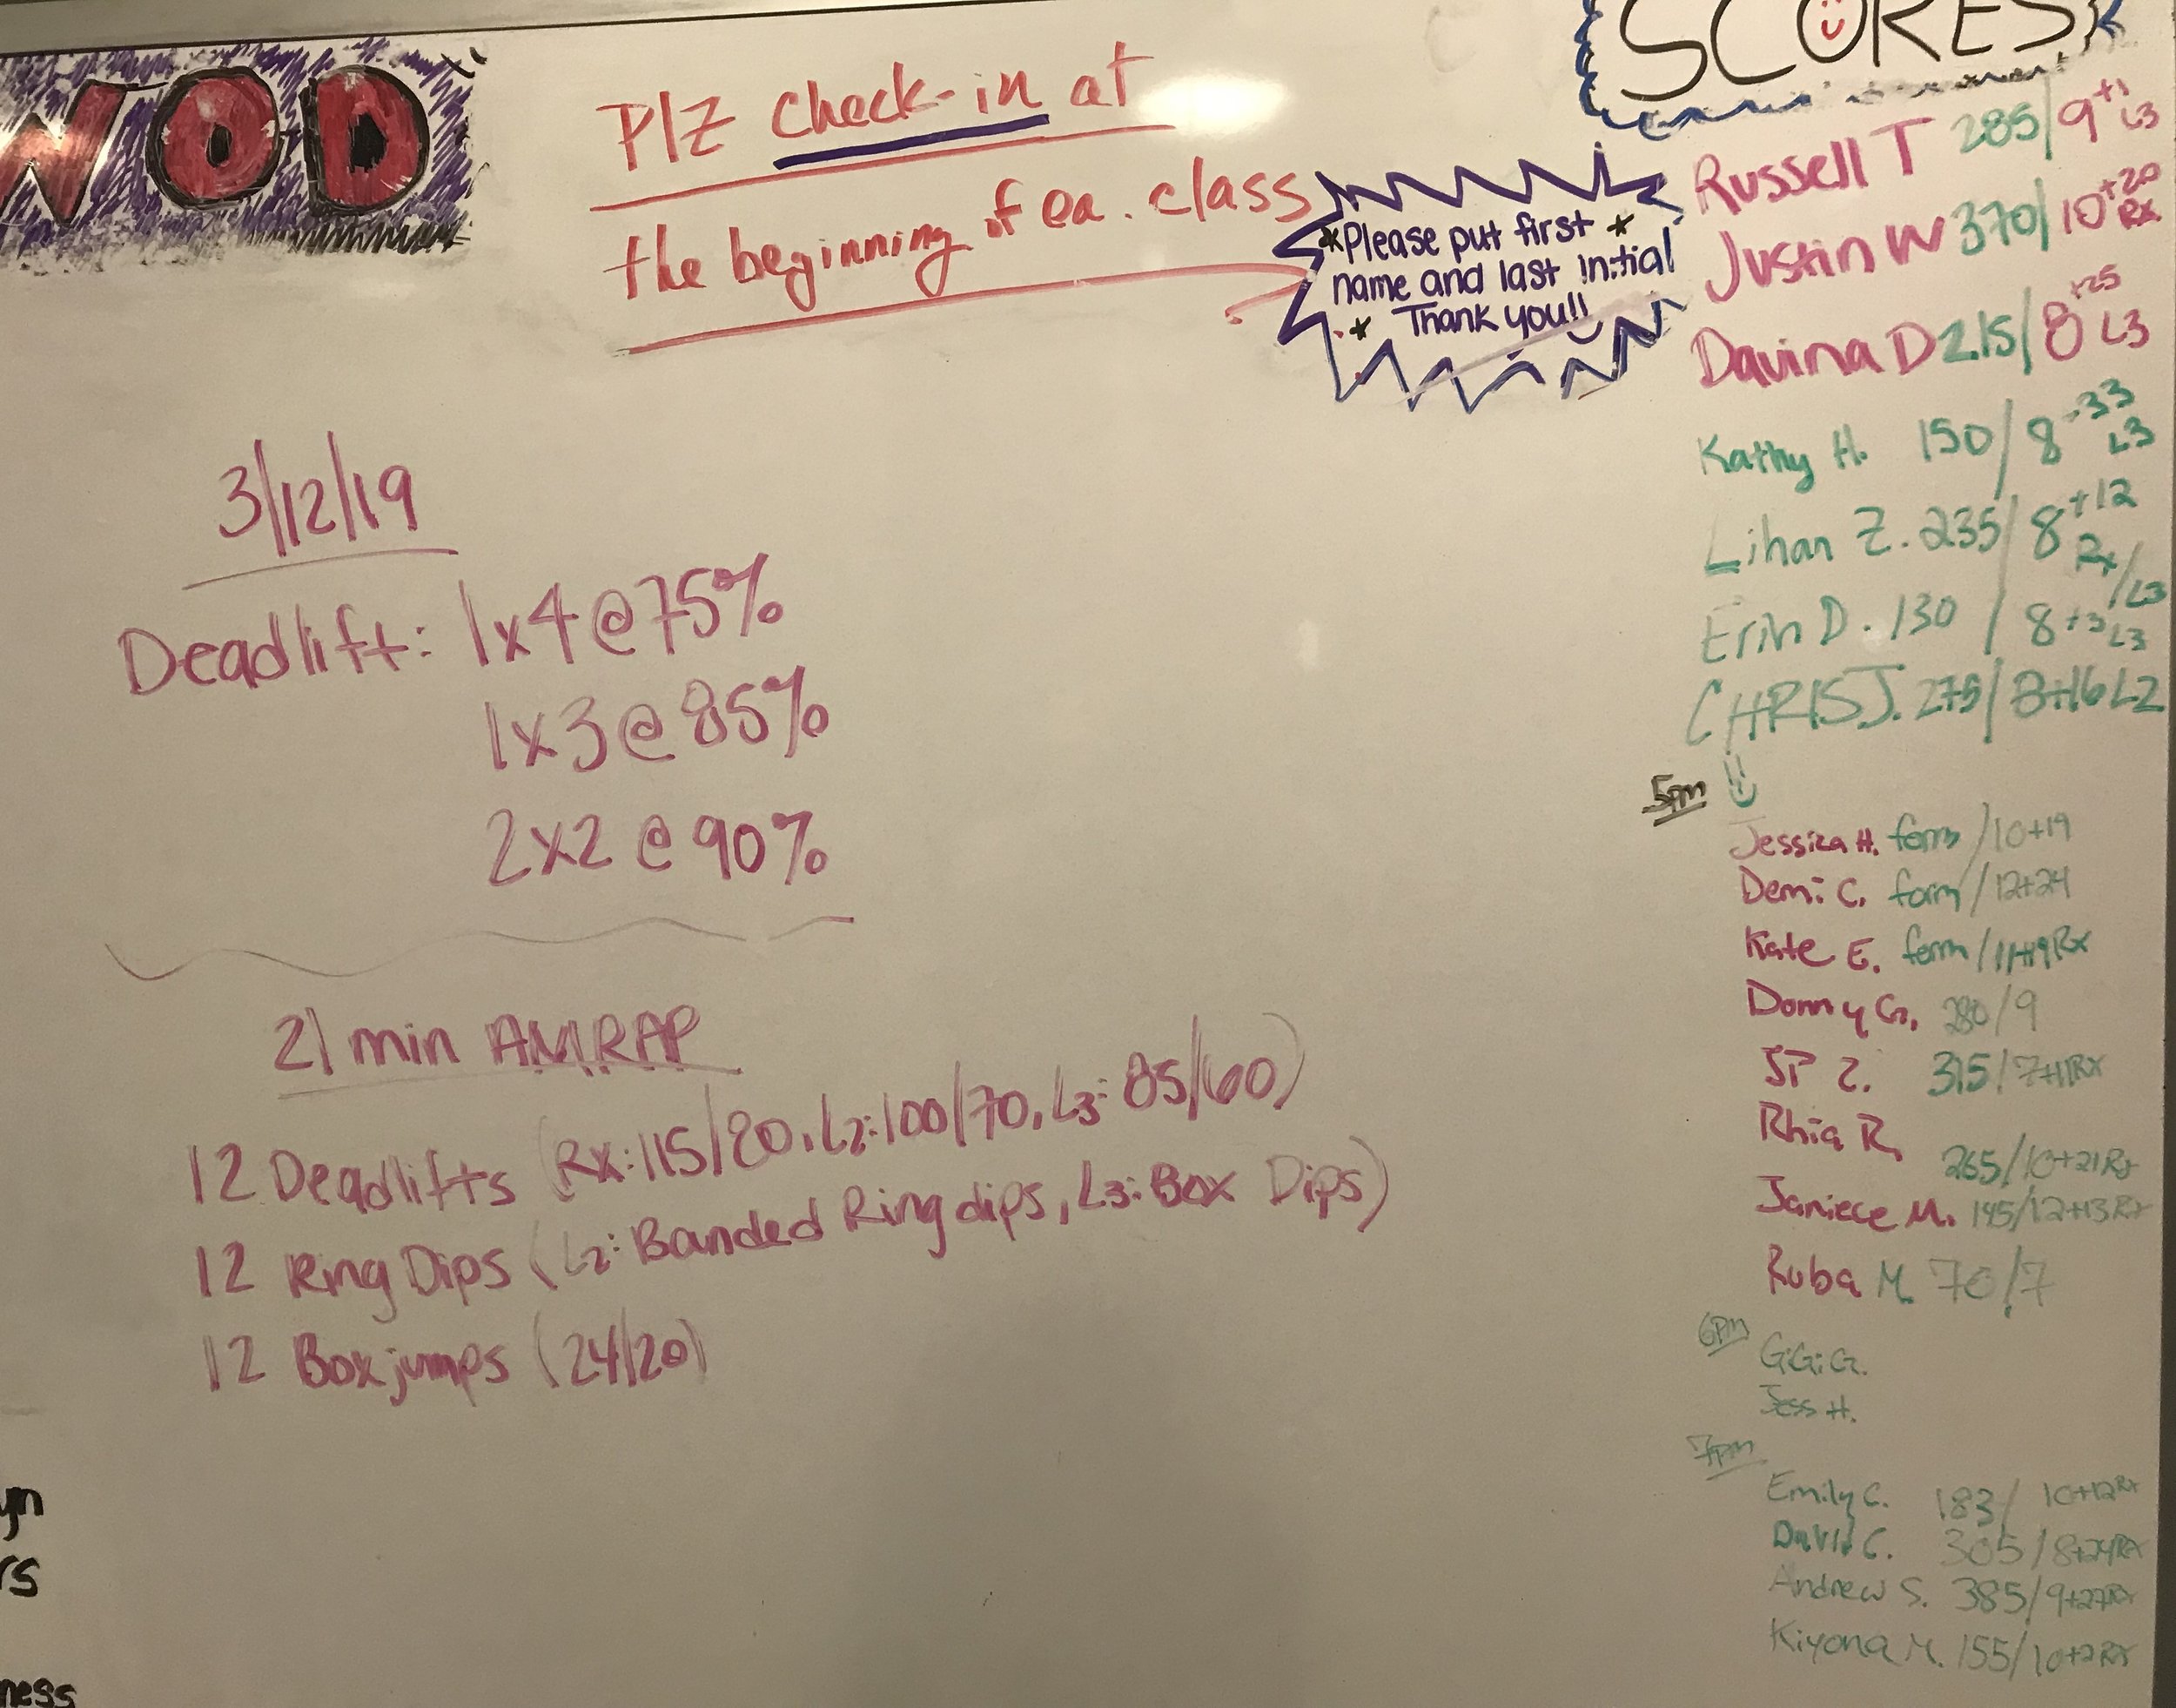 WOD
Plz check-in at
the beginning of ea. class
*Please put first *
name and last initial
* Thank you!!
3/12/19
Deadlift: 1x4 @ 75%
1x3 @ 85%
2x2 @ 90%
21 min AMRAP
12 Deadlifts (Rx: 115/80, L2: 100/70, L3: 85/60)
12 Ring Dips (L2: Banded Ring dips, L3: Box Dips)
12 Box jumps (24/20)
SCORES
Russell T 285/9+1 L3
Justin W 370/10+20 Rx
Davina D 215/8+25 L3
Kathy H. 150/8+33 L3
Lihan Z. 235/8+12 Rx/L3
Erin D. 130/8+3 L3
CHRIS J. 275/8+16 L2
5pm
Jessica H. form/10+19
Demi C. form/12+24
Kate E. form/11+19 Rx
Donny G. 280/9
JP Z. 315/7+11 Rx
Rhia R. 265/10+21 Rx
Janiece M. 145/12+13 Rx
Ruba M. 70/7
6pm
GiGi G.
Jess H.
7pm
Emily C. 183/10+12 Rx
David C. 305/8+24 Rx
Andrew S. 385/9+27 Rx
Kiyona M. 155/10+2 Rx
yn
rs
ness